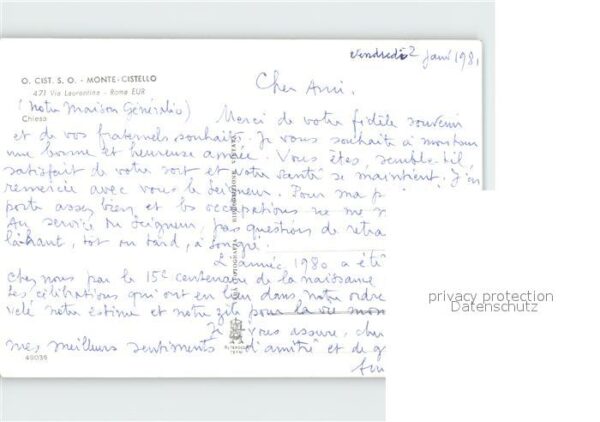 vendredi 2 janv 1981
O. CIST. S. O. - MONTE-CISTELLO
471 Via Laurentina - Roma EUR
Cher Ami.
(Notre Maison Généralice)
Chiesa
Merci de votre fidèle souvenir
et de vos fraternels souhaits. Je vous souhaite à mon tour
une bonne et heureuse année. Vous êtes, semble-t-il,
satisfait de votre sort et votre santé se maintient. J'en
remercie avec vous le Seigneur. Pour ma p
porte assez bien et les occupations ne me
Au service du Seigneur, pas questions de retra
lâchant, tôt ou tard, à songer.
L'année 1980 a été
chez nous par le 15e centenaire de la naissance
Les célébrations qui ont eu lieu dans notre ordre
velé notre estime et notre zèle pour la vie mon
Je vous assure, cher
mes meilleurs sentiments d'amitié et de g
40036
privacy protection
Datenschutz